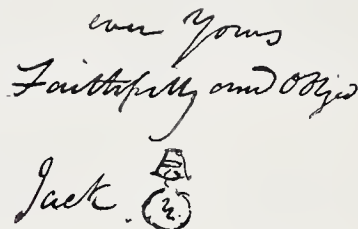 ever Yours
Faithfully and Obligd
Jack.